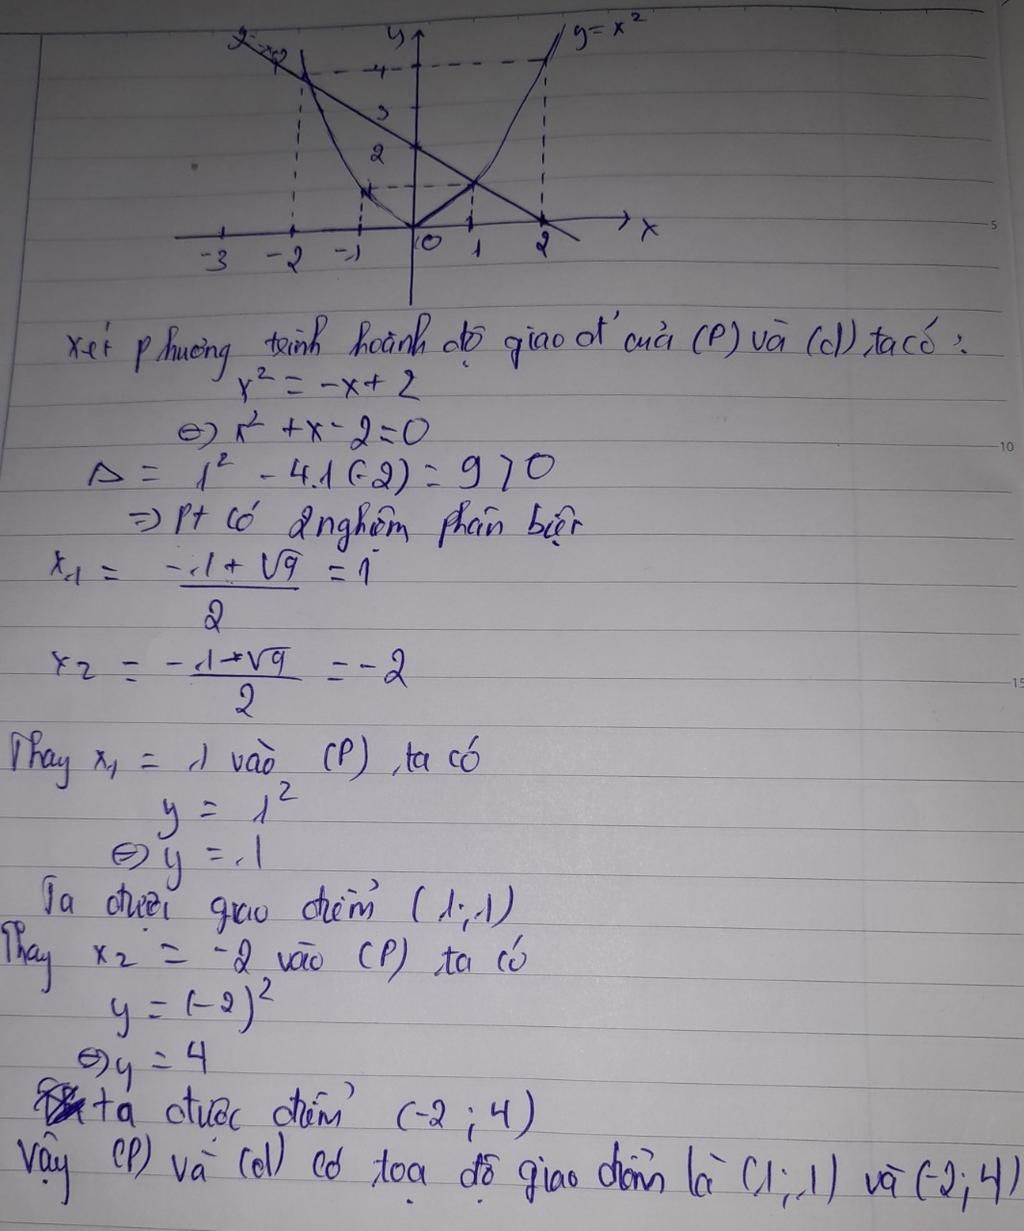 y
y = x²
4
3
2
-3 -2 -1 0 1 2 x
5
xét phương trình hoành độ giao đ' của (P) và (d), ta có:
x² = -x + 2
⇔ x² + x - 2 = 0
10
Δ = 1² - 4.1(-2) = 9 > 0
⇒ Pt có 2 nghiệm phân biệt
x₁ = (-1 + √9)/2 = 1
x₂ = (-1 - √9)/2 = -2
15
Thay x₁ = 1 vào (P), ta có
y = 1²
⇔ y = 1
Ta được giao điểm (1;1)
Thay x₂ = -2 vào (P) ta có
y = (-2)²
⇔ y = 4
ta được điểm (-2; 4)
Vậy (P) và (d) có toạ độ giao điểm là (1;1) và (-2; 4)